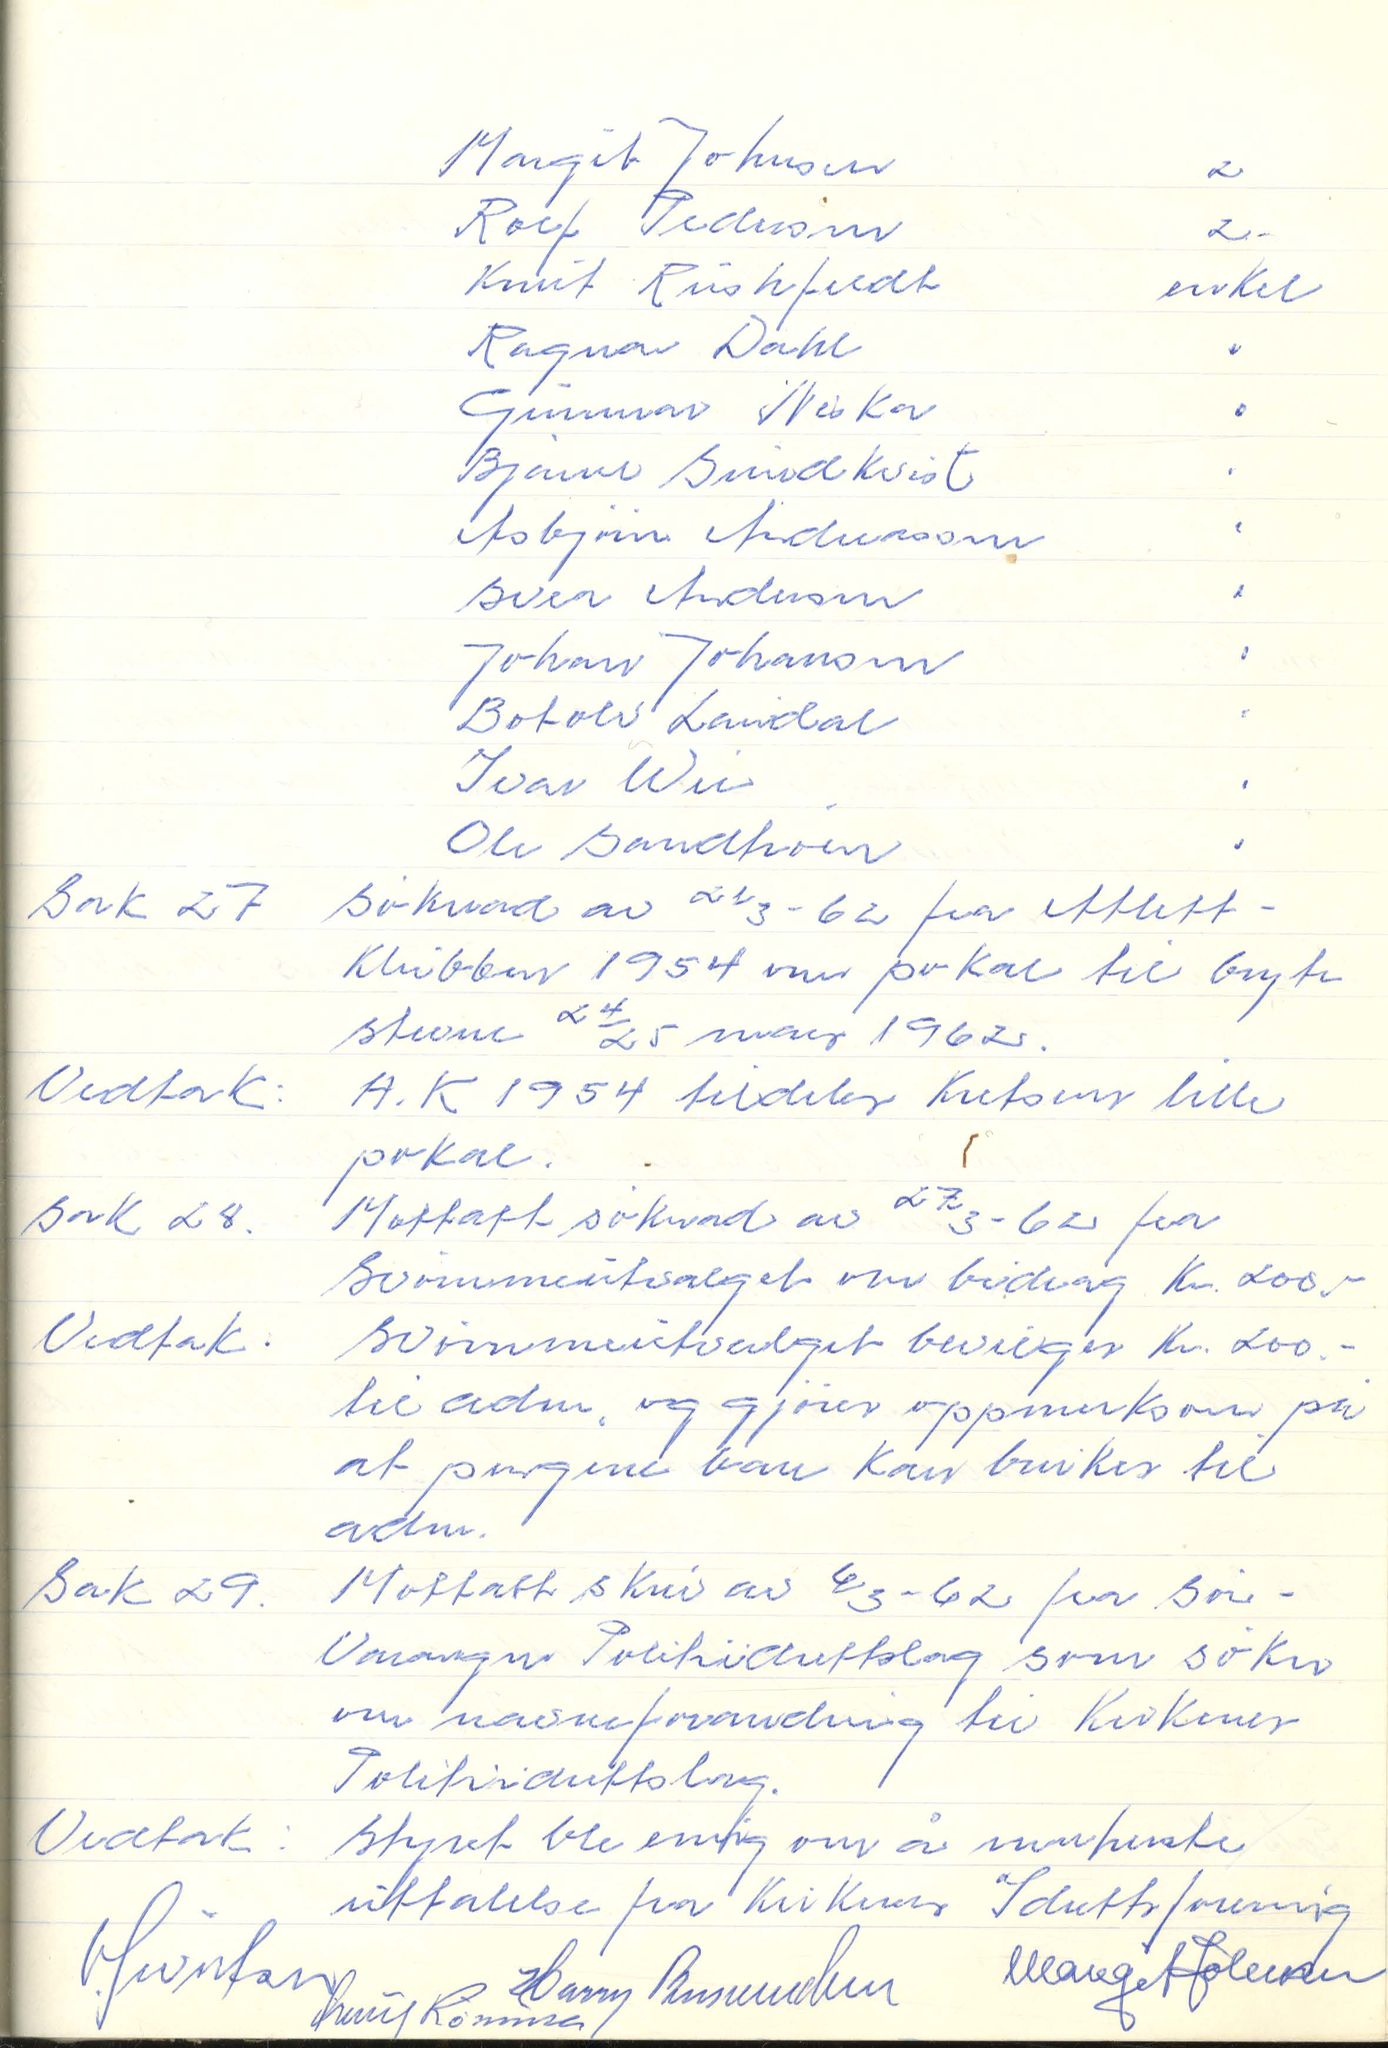 Margit Johnsen 2
Rolf Pedersen 2-
Knut Rushfeldt enkel
Ragnar Dahl "
Gunnar Niska "
Bjarne Sundkvist "
Asbjörn Andreassen "
Svea Andersen "
Johan Johansen "
Botolv Landal "
Ivar Wii "
Ole Sandhven "
Sak 27 Söknad av 21/3-62 fra Atlett-
Klubben 1954 om pokal til bryte
stevne 24/25 mars 1962.
Vedtak: A.K 1954 tildeles Kretsens lille
pokal.
Sak 28. Mottatt söknad av 27/3-62 fra
Svömmeutvalget om bidrag Kr. 200.-
Vedtak: Svömmeutvalget bevilges Kr. 200.-
til adm. og gjöres oppmerksom på
at pengene bare kan brukes til
adm.
Sak 29. Mottatt skriv av 6/3-62 fra Sör-
Varanger Politiidrettslag som söker
om navneforandring til Kirkenes
Politiidrettslag.
Vedtak: Styret ble enig om å innhente
uttalelse fra Kirkenes Idrettsforening
Harry Margit Johnsen